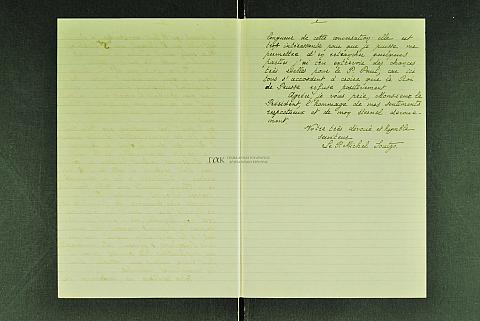 longueur de cette conversation: elle est
trop intéressante pour que je puisse me
permettre d'en retrancher quelques
parties. J'ai cru entrevoir des chances
très réelles pour le P. Paul, car ici
tous s'accordent à croire que le Roi
de Prusse refuse positivement.
Agréez, je vous prie, Monsieur le
Président, l'hommage de mes sentiments
respectueux et de mon éternel dévoue-
ment.
Votre très dévoué et humble
serviteur
Le P. Michel Soutzo.
ΓΑΚ